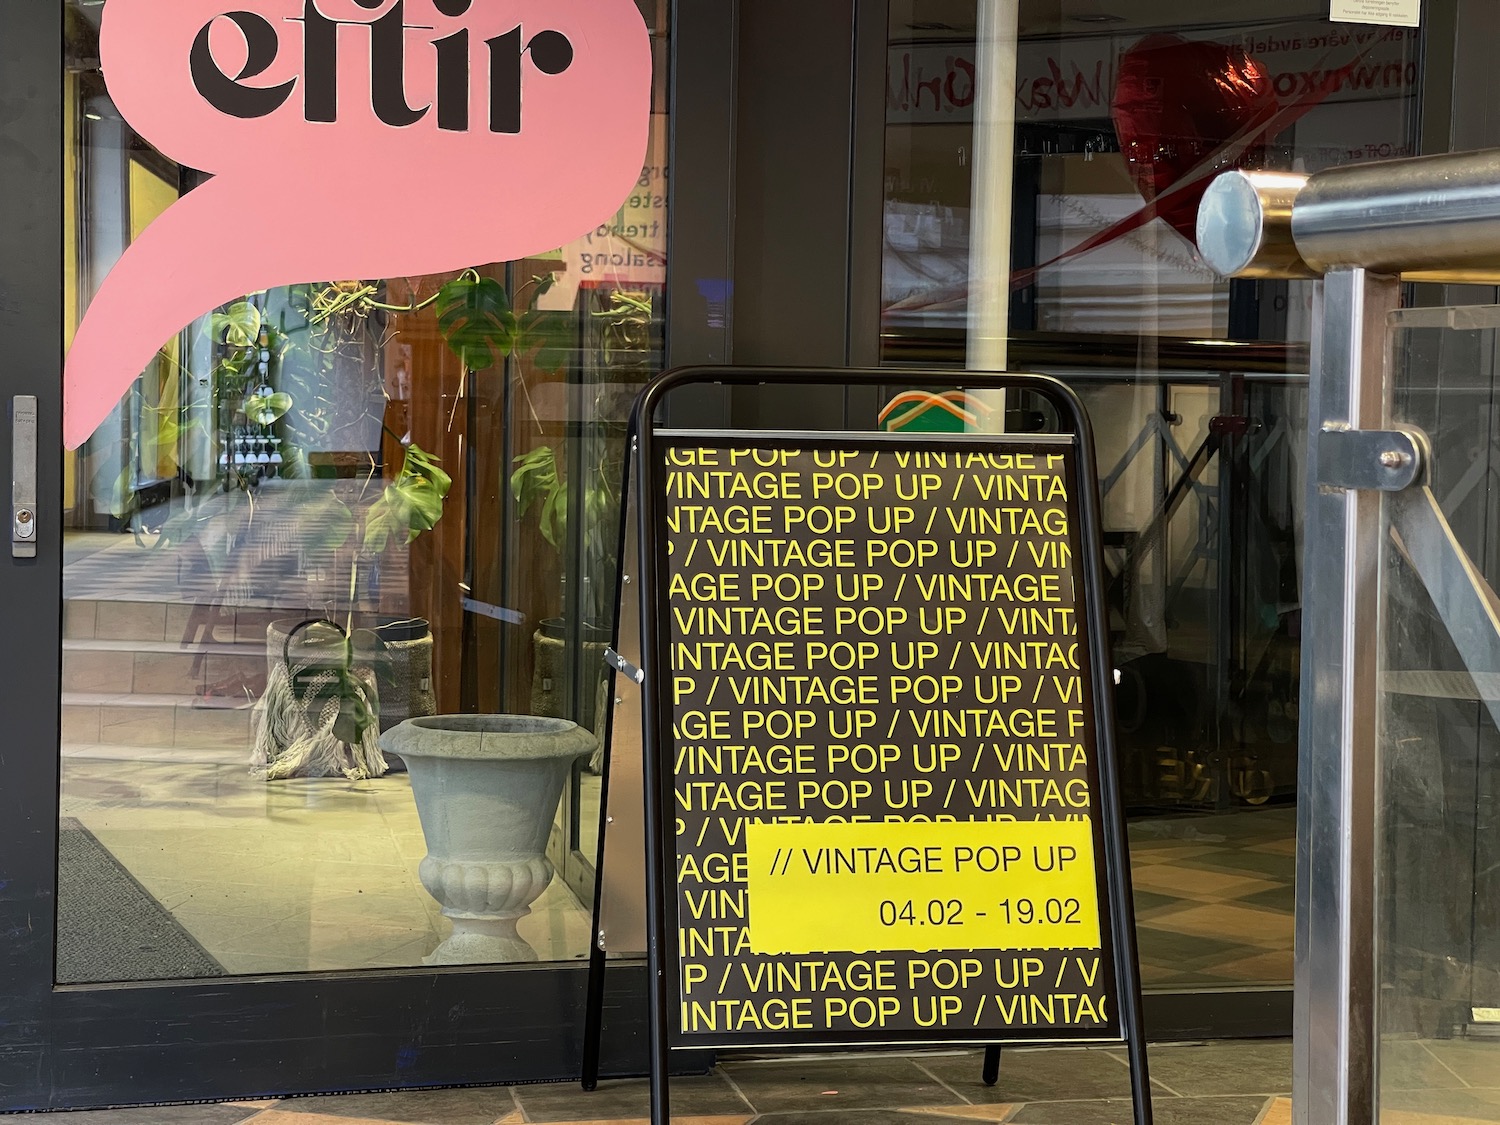 eftir
AGE POP UP / VINTAGE P
VINTAGE POP UP / VINTA
NTAGE POP UP / VINTAG
P / VINTAGE POP UP / VIN
AGE POP UP / VINTAGE
VINTAGE POP UP / VINTA
INTAGE POP UP / VINTAG
P / VINTAGE POP UP / VI
AGE POP UP / VINTAGE P
VINTAGE POP UP / VINTA
NTAGE POP UP / VINTAG
P / VINTAGE POP UP / VIN
TAGE
// VINTAGE POP UP
VIN
04.02 - 19.02
INTA
P / VINTAGE POP UP / V
INTAGE POP UP / VINTAG